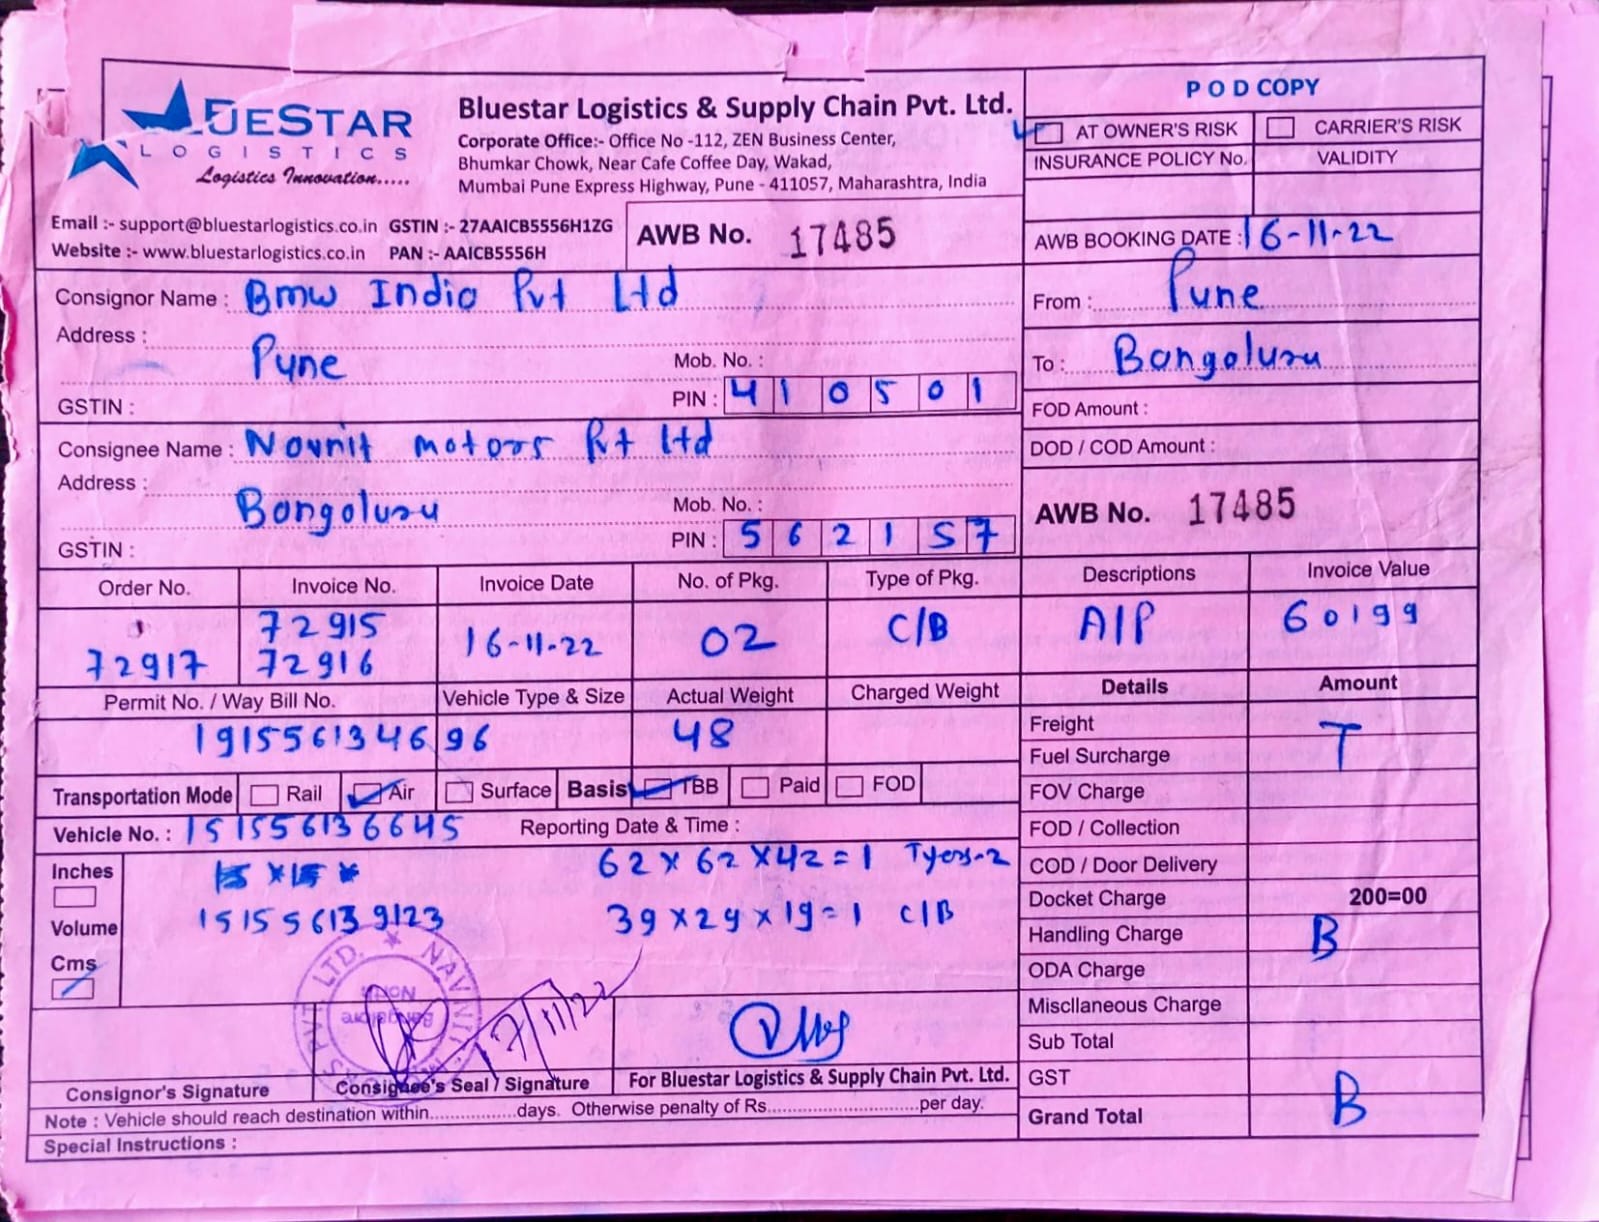 BLUESTAR
LOGISTICS
Logistics Innovation.....
Bluestar Logistics & Supply Chain Pvt. Ltd.
Corporate Office:- Office No -112, ZEN Business Center,
Bhumkar Chowk, Near Cafe Coffee Day, Wakad,
Mumbai Pune Express Highway, Pune - 411057, Maharashtra, India
Email :- support@bluestarlogistics.co.in GSTIN :- 27AAICB5556H1ZG
Website :- www.bluestarlogistics.co.in PAN :- AAICB5556H
AWB No. 17485
POD COPY
AT OWNER'S RISK CARRIER'S RISK
INSURANCE POLICY No. VALIDITY
AWB BOOKING DATE : 16-11-22
From : Pune
To : Bangaluru
FOD Amount :
DOD / COD Amount :
AWB No. 17485
Consignor Name : Bmw India Pvt Ltd
Address :
Pune
Mob. No. :
GSTIN :
PIN : 410501
Consignee Name : Navnit motors Pvt Ltd
Address :
Bangaluru
Mob. No. :
GSTIN :
PIN : 562157
Order No. Invoice No. Invoice Date No. of Pkg. Type of Pkg. Descriptions Invoice Value
72915
72917 72916 16-11-22 02 C/B A/P 60199
Permit No. / Way Bill No. Vehicle Type & Size Actual Weight Charged Weight Details Amount
191556134696 48
Freight T
Fuel Surcharge
Transportation Mode Rail Air Surface Basis TBB Paid FOD
FOV Charge
Vehicle No. : 151556136645 Reporting Date & Time :
FOD / Collection
Inches 62 x 62 x 42 = 1 Tyers-2
COD / Door Delivery
Docket Charge 200=00
Volume 151556139123 39 x 29 x 19 = 1 C/B
Handling Charge B
Cms
ODA Charge
Miscllaneous Charge
Sub Total
NAVNIT
PVT. LTD.
Bangalore
17/11/22
Consignor's Signature Consignee's Seal / Signature For Bluestar Logistics & Supply Chain Pvt. Ltd.
GST
Grand Total B
Note : Vehicle should reach destination within..................days. Otherwise penalty of Rs................................per day.
Special Instructions :